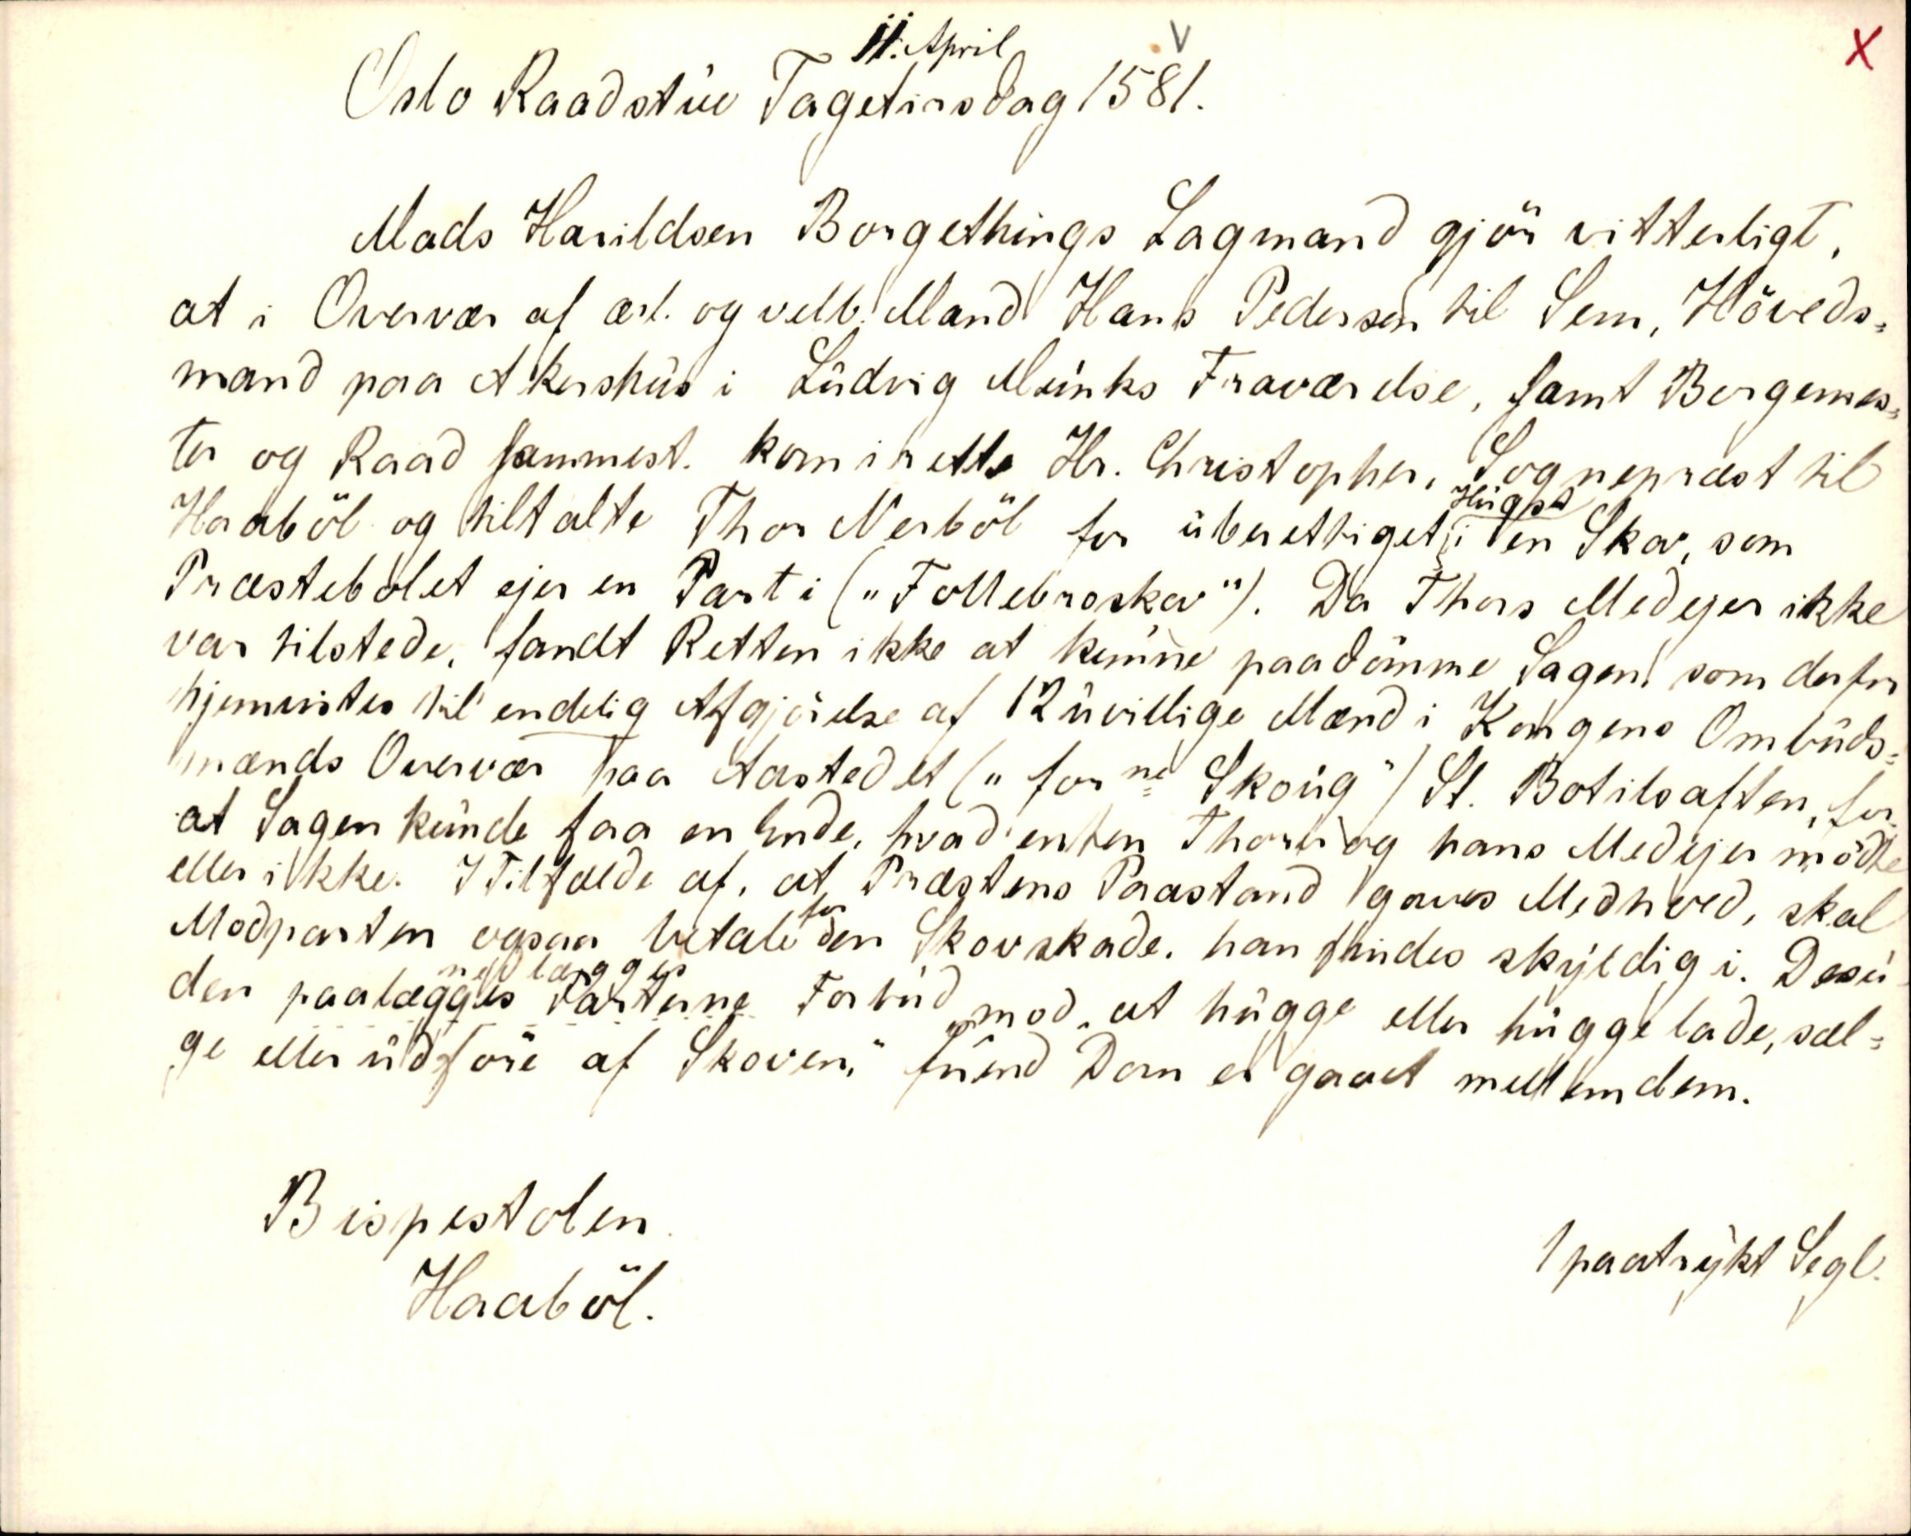 11. April V X
Oslo Raadstue Tagetirsdag 1581.
Mads Harildsen Borgethings Lagmand gjör vitterligt,
at i Overvær af ærl. og velb. Mand Hans Pedersen til Sem, Höveds=
mand paa Akershus i Ludvig Munks Fraværelse, samt Borgemes=
ter og Raad sammest. kom irette Hr. Christopher, Sogneprest til
Haaböl og tiltalte Thor Nerböl for uberettiget Hugst i en Skov, som
Præstebolet ejer en Part i („Follebroskov“). Da Thors Medejer ikke
var tilstede, fandt Retten ikke at kunne paadömme Sagen, som derfor
hjemvistes til endelig Afgjörelse af 12 uvillige Mænd i Kongens Ombuds=
mænds Overvær paa Aastedet („for ne Skoug“) St. Botilsaften, for
at Sagen kunde faa en Ende, hvad enten Thor og hans Medejer mödte
eller ikke. I Tilfælde af, at Præstens Paastand gaves Medhold, skal
Modparten ogsaa betale for den Skovskade, han findes skyldig i. Desu
den paalægges nedlægges Parterne Forbud mod „at hugge eller hugge lade, sæl=
ge eller udföre af Skoven,“ förend Dom er gaaet mellem dem.
Bispestolen
Haaböl.
1 paatrykt Segl.